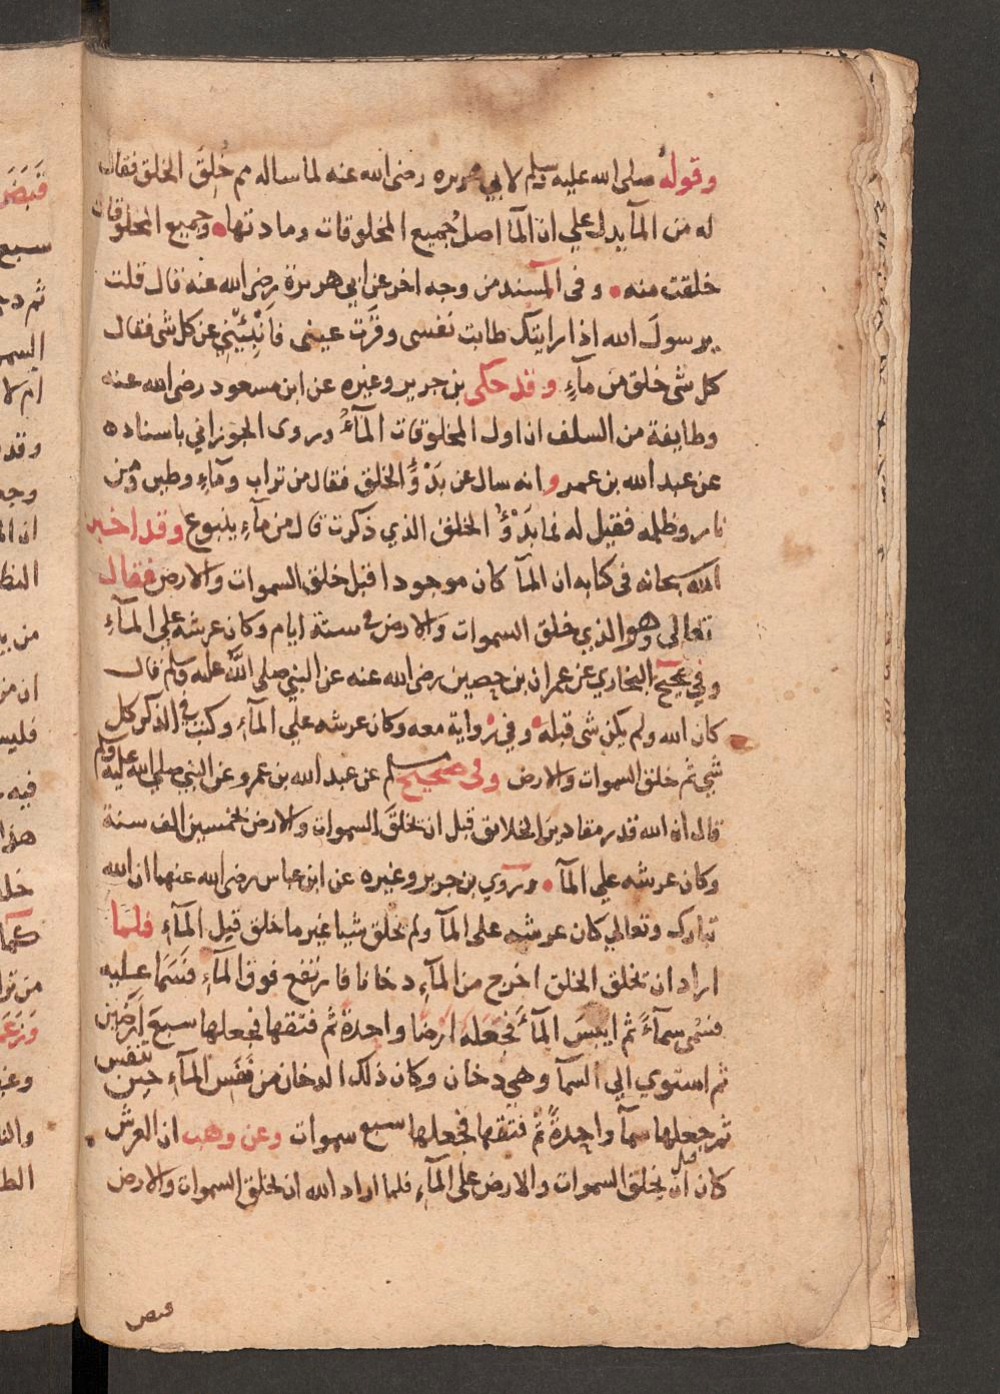 وقوله صلى الله عليه وسلم لابي هريره رضى الله عنه لما ساله مم خُلِقَ الخلق فقال
له من المآ يدل علي ان المآ اصل جُميع المخلوقات ومادتها وجميع المخلوقات
خلقت منه وفى المسند من وجه اخر عن ابي هريرة رضى الله عنه قال قلت
يرسولَ الله اذا رايتك طابت نفسى وقَرَّت عينى فاَنْبِئيْنِي عن كل شى فقال
كل شى خلق من مآءٍ وقد حكى بن جرير وغيره عن ابن مسعود رضى الله عنه
وطايفة من السلف ان اول المخلوقات المآءُ وروى الجوزاني باسناده
عن عبد الله بن عمرو انه سال عن بَدْؤُ الخلق فقال من تراب ومآءٍ وطين ومن
نار وظلمه فقيل له فما بَدْؤُ الخلق الذي ذكرت قال من مآءٍ ينبوع وقد اخبر
الله سبحانه فى كتابه ان المآ كان موجودا قبل خلق السموات والارض فقال
تعالى وهو الذي خلق السموات والارض فى ستة ايام وكان عرشه علي المآءِ
وفي صحيح البخاري عن عمران بن حصين رضى الله عنه عن النبي صلى اللَّه عليه وسلم قال
كان الله ولم يكن شى قبله وفي رواية معه وكان عرشه علي المآءِ وكتب في الذكر كل
شي ثم خلق السموات والارض وفى صحيح مسلم عن عبد الله بن عمرو عن النبي صلى الله عليه وسلم
قال ان الله قدر مقادير الخلايق قبل ان يخلقَ السموات والارض بخمسين الف سنة
وكان عرشه علي المآ وروي بن جرير وغيره عن ابن عباس رضى الله عنهما ان الله
تبارك وتعالي كان عرشه على المآ ولم يخلق شيا غير ما خلق قبل المآءِ فلما
اراد ان يخلق الخلق اخرج من المآءِ دخانا فارتفع فوق المآءِ فسَمَا عليه
فسُمى سمآءً ثم ايبسَ المآءَ فجَعَله ارضًا واحدةً ثم فتقها فجعلها سبعَ اَرَضِين
ثم استوي الي السمآ وهي دخان وكان ذلك الدخان من نَفَس المآءِ حين تنفس
ثم جعلها سمآ واحِدةً ثم فتقها فجعلها سبع سموات وعن وهب ان العرش
كان قبل ان يخلق السموات والارض على المآءِ فلما اراد الله ان يخلق السموات والارض
قبض